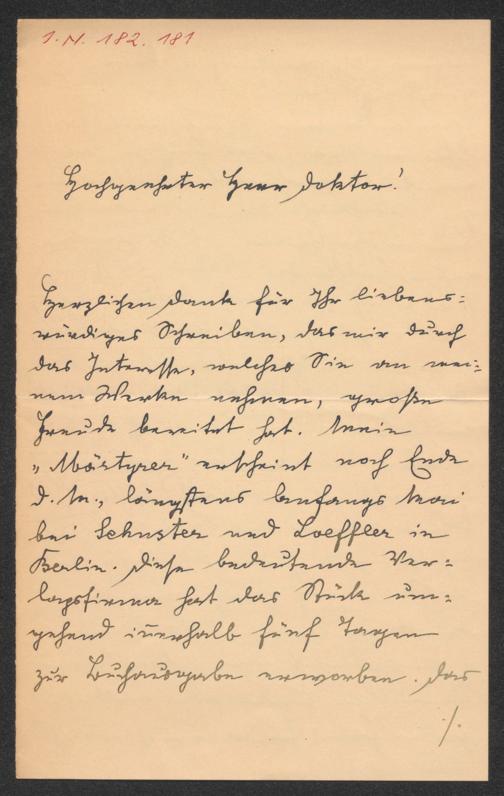 I. N. 182. 181
Hochgeehrter Herr Doktor!
Herzlichen Dank für Ihr liebens=
würdiges Schreiben, das mir durch
das Interesse, welches Sie an mei=
nem Werke nehmen, große
Freude bereitet hat. Mein
„Märtyrer" erscheint noch Ende
d. M., längstens Anfangs Mai
bei Schuster und Loeffler in
Berlin. Diese bedeutende Ver=
lagsfirma hat das Stück um=
gehend innerhalb fünf Tagen
zur Buchausgabe erworben. Das
./.